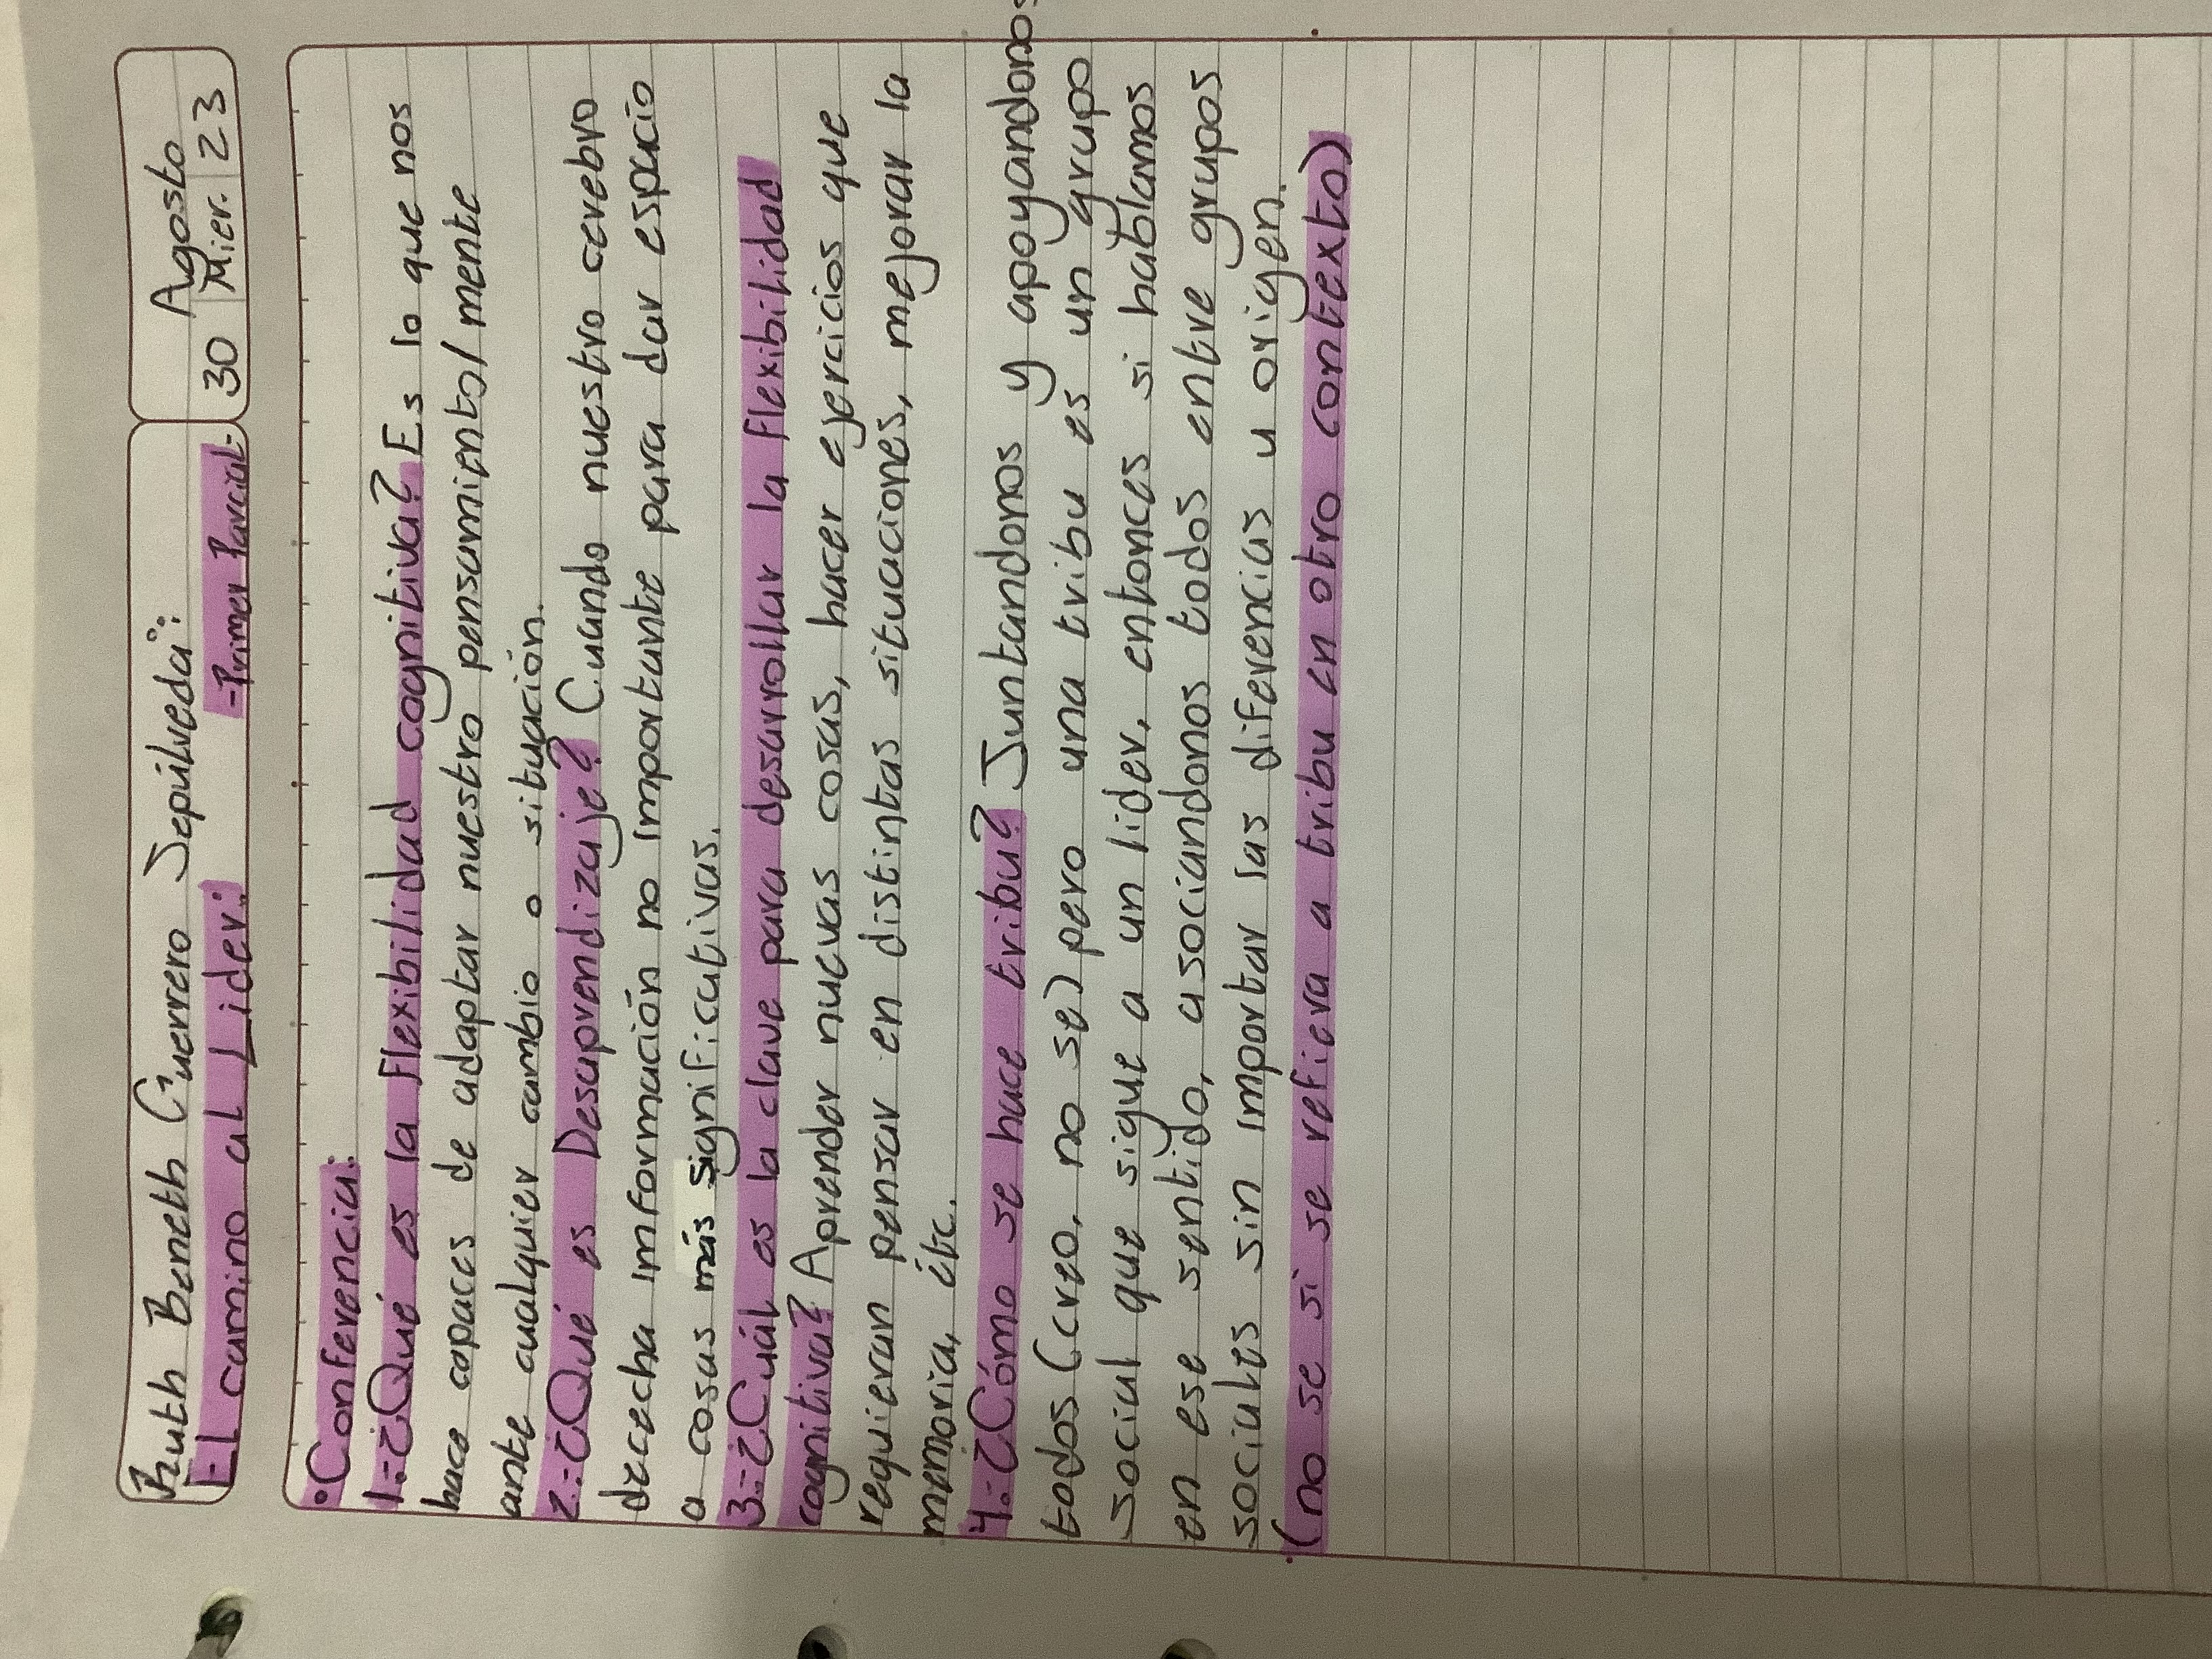 Ruth Baneth Guerrero Sepúlveda:
El camino al Lider: -Primer Parcial-
Agosto
30 Mier. 23
•Conferencia:
1.-¿Qué es la flexibilidad cognitiva? Es lo que nos
hace capaces de adaptar nuestro pensamiento/mente
ante cualquier cambio o situación.
2.-¿Qué es Desaprendizaje? Cuando nuestro cerebro
dececha información no importante para dar espacio
a cosas más significativas.
3.-¿Cuál es la clave para desarrollar la flexibilidad
cognitiva? Aprender nuevas cosas, hacer ejercicios que
requieran pensar en distintas situaciones, mejorar la
memoria, étc.
4.-¿Cómo se hace tribu? Juntandonos y apoyandonos
todos (creo, no se) pero una tribu es un grupo
social que sigue a un lider, entonces si hablamos
en ese sentido, asociandonos todos entre grupos
sociales sin importar las diferencias u origen.
(no se si se refiera a tribu en otro contexto)